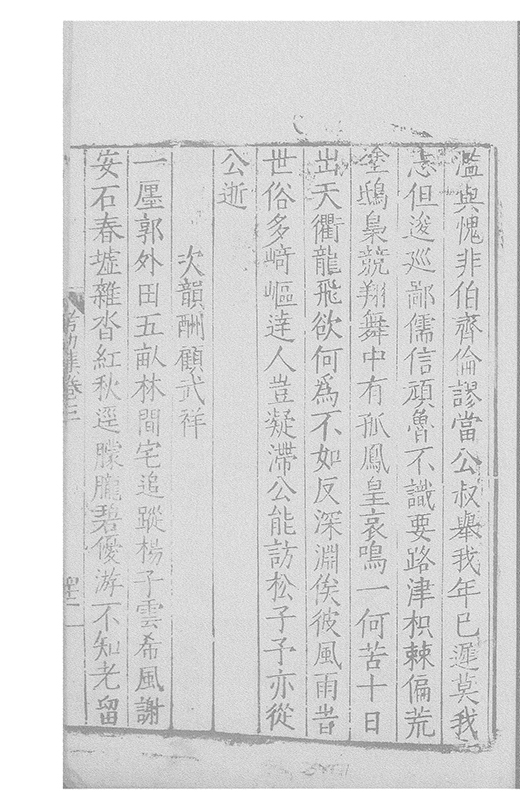 濫與愧非伯齊倫謬當公叔舉我年已遲莫我
志但逡巡鄙儒信頑魯不識要路津枳棘偏荒
塗鴟梟競翔舞中有孤鳳皇哀鳴一何苦十日
出天衢龍飛欲何為不如反深淵俟彼風雨旹
世俗多﨑嶇達人豈凝滯公能訪松子予亦從
公逝
次韻酬顧武祥
一廛郭外田五畝林間宅追蹤楊子雲希風謝
安石春墟雜沓紅秋逕朦朧碧優游不知老留
考功集卷三